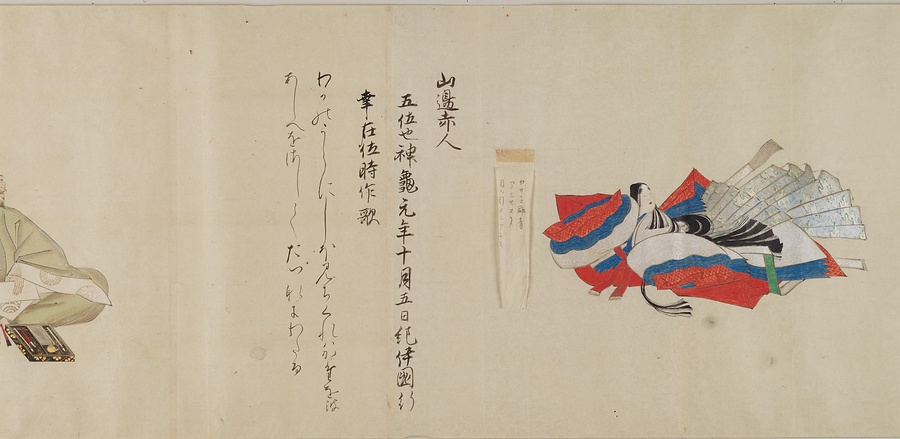 山邊赤人
五位也神龜元年十月五日紀伊國行
幸在位時作歌
わかのうらにしほみちくれはかたをなみ
あしへをさしてたつなきわたる